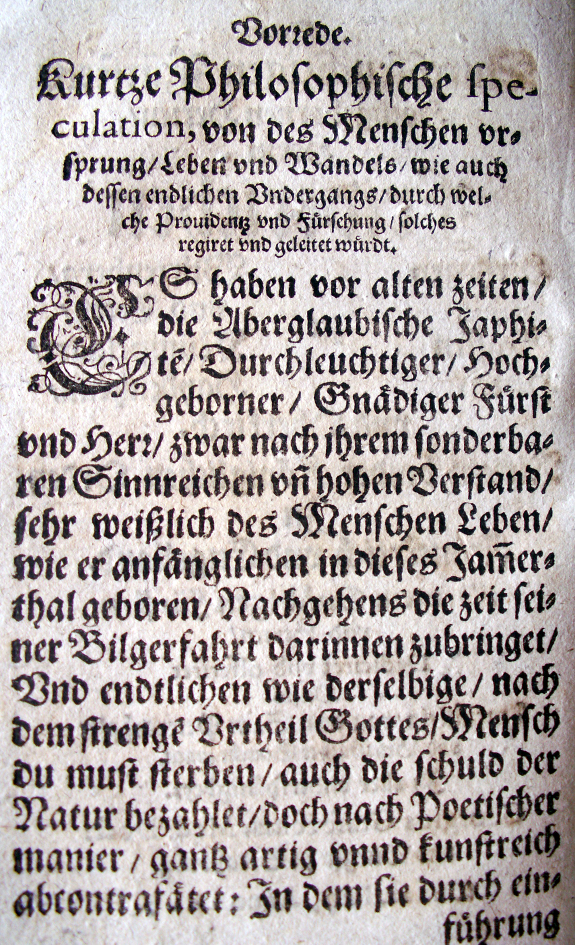 Vorrede.
Kurtze Philosophische spe-
culation, von des Menschen vr-
sprung/ Leben vnd Wandels/ wie auch
dessen endlichen Vndergangs/ durch wel-
che Prouidentz vnd Fürsehung/ solches
regiret vnd geleitet würdt.
ES haben vor alten zeiten/
die Aberglaubische Japhi-
tē/ Durchleuchtiger/ Hoch-
geborner/ Gnädiger Fürst
vnd Herr/ zwar nach jhrem sonderba-
ren Sinnreichen vñ hohen Verstand/
sehr weißlich des Menschen Leben/
wie er anfänglichen in dieses Jam̄er-
thal geboren/ Nachgehens die zeit sei-
ner Bilgerfahrt darinnen zubringet/
Vnd endtlichen wie derselbige/ nach
dem strengē Vrtheil Gottes/ Mensch
du must sterben/ auch die schuld der
Natur bezahlet/ doch nach Poetischer
manier/ gantz artig vnnd kunstreich
abcontrafätet: In dem sie durch ein-
führung